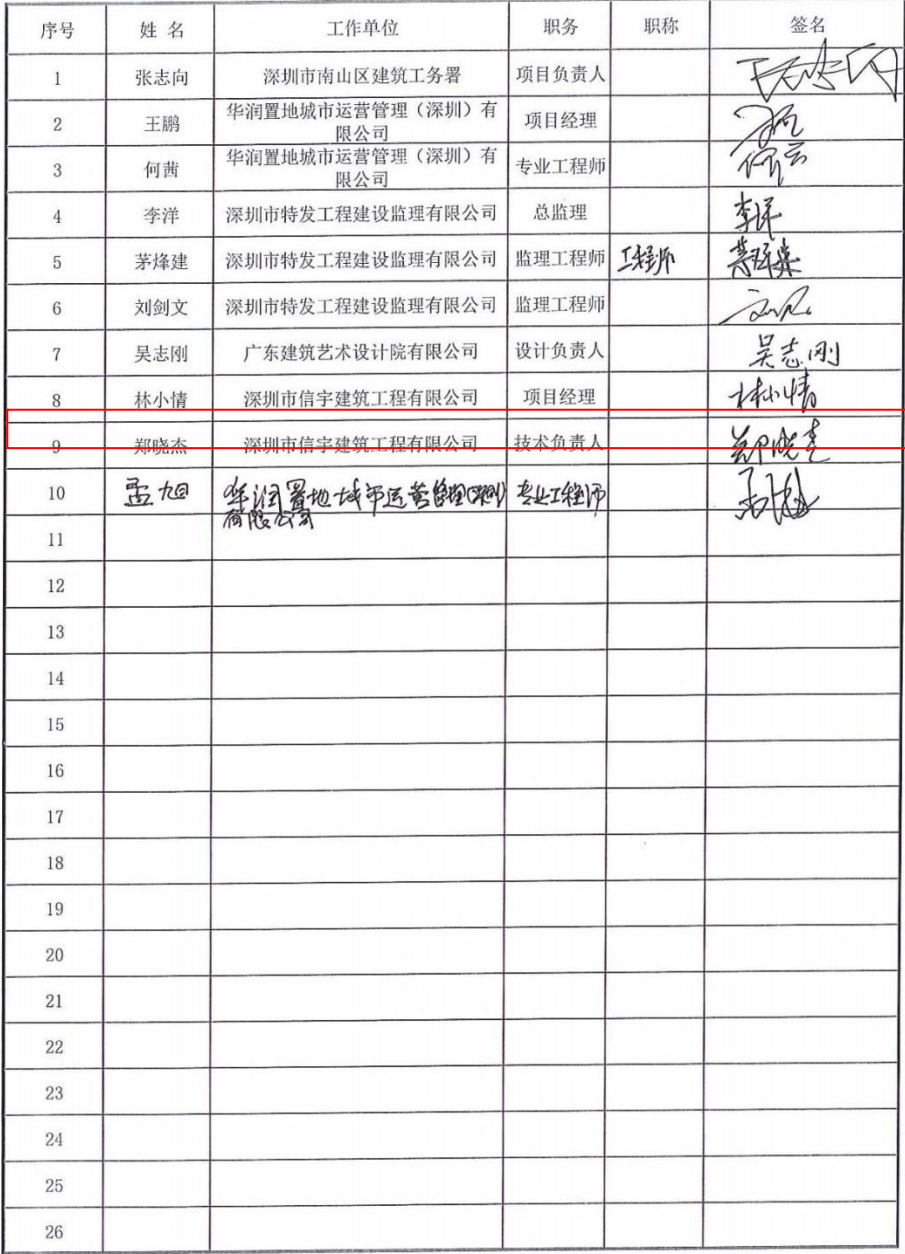 序号 姓 名 工作单位 职务 职称 签名
1 张志向 深圳市南山区建筑工务署 项目负责人
2 王鹏 华润置地城市运营管理（深圳）有
限公司 项目经理
3 何茜 华润置地城市运营管理（深圳）有
限公司 专业工程师
4 李洋 深圳市特发工程建设监理有限公司 总监理 李洋
5 茅烽建 深圳市特发工程建设监理有限公司 监理工程师 工程师
6 刘剑文 深圳市特发工程建设监理有限公司 监理工程师
7 吴志刚 广东建筑艺术设计院有限公司 设计负责人 吴志刚
8 林小情 深圳市信宇建筑工程有限公司 项目经理 林小情
9 郑晓杰 深圳市信宇建筑工程有限公司 技术负责人 郑晓杰
10 孟旭 华润置地城市运营管理(深圳)
有限公司 专业工程师
11
12
13
14
15
16
17
18
19
20
21
22
23
24
25
26